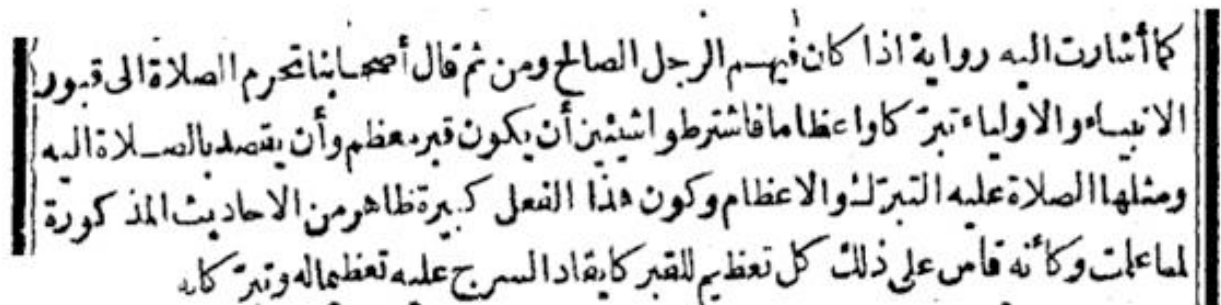 كما أشارت اليه رواية اذا كان فيهم الرجل الصالح ومن ثم قال أصحابنا تحرم الصلاة الى قبور
الانبياء والاولياء تبرّكا واعظاما فاشترطوا شيئين أن يكون قبر معظم وأن يقصد بالصلاة اليه
ومثلها الصلاة عليه التبرّك والاعظام وكون هذا الفعل كبيرة ظاهر من الاحاديث المذكورة
لما علمت وكأنه قاس على ذلك كل تعظيم للقبر كايقاد السرج عليه تعظيما له وتبرّكا به